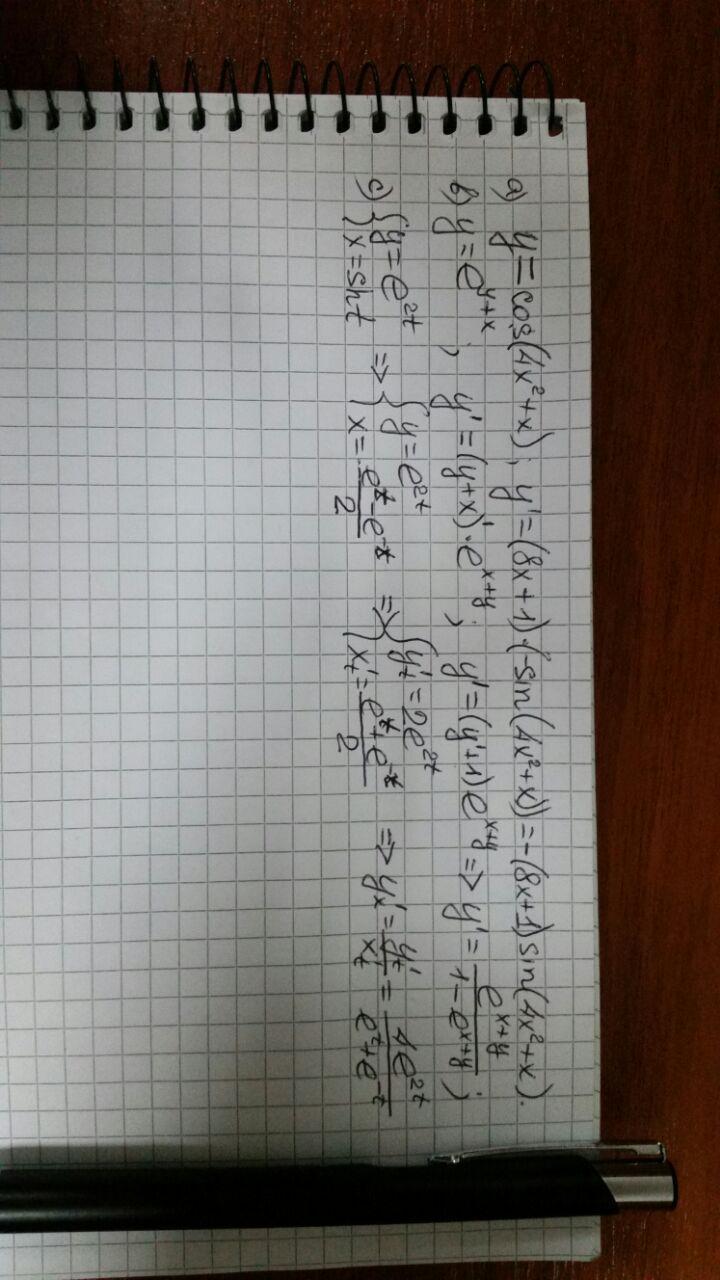 a) y = cos(4x²+x); y' = (8x+1)·(-sin(4x²+x)) = -(8x+1)sin(4x²+x).
b) y = e^{y+x}; y' = (y+x)'·e^{x+y}; y' = (y'+1)e^{x+y} => y' = \frac{e^{x+y}}{1-e^{x+y}};
c) \begin{cases} y = e^{2t} \\ x = sht \end{cases} => \begin{cases} y = e^{2t} \\ x = \frac{e^t-e^{-t}}{2} \end{cases} => \begin{cases} y'_t = 2e^{2t} \\ x'_t = \frac{e^t+e^{-t}}{2} \end{cases} => y'_x = \frac{y'_t}{x'_t} = \frac{4e^{2t}}{e^t+e^{-t}}